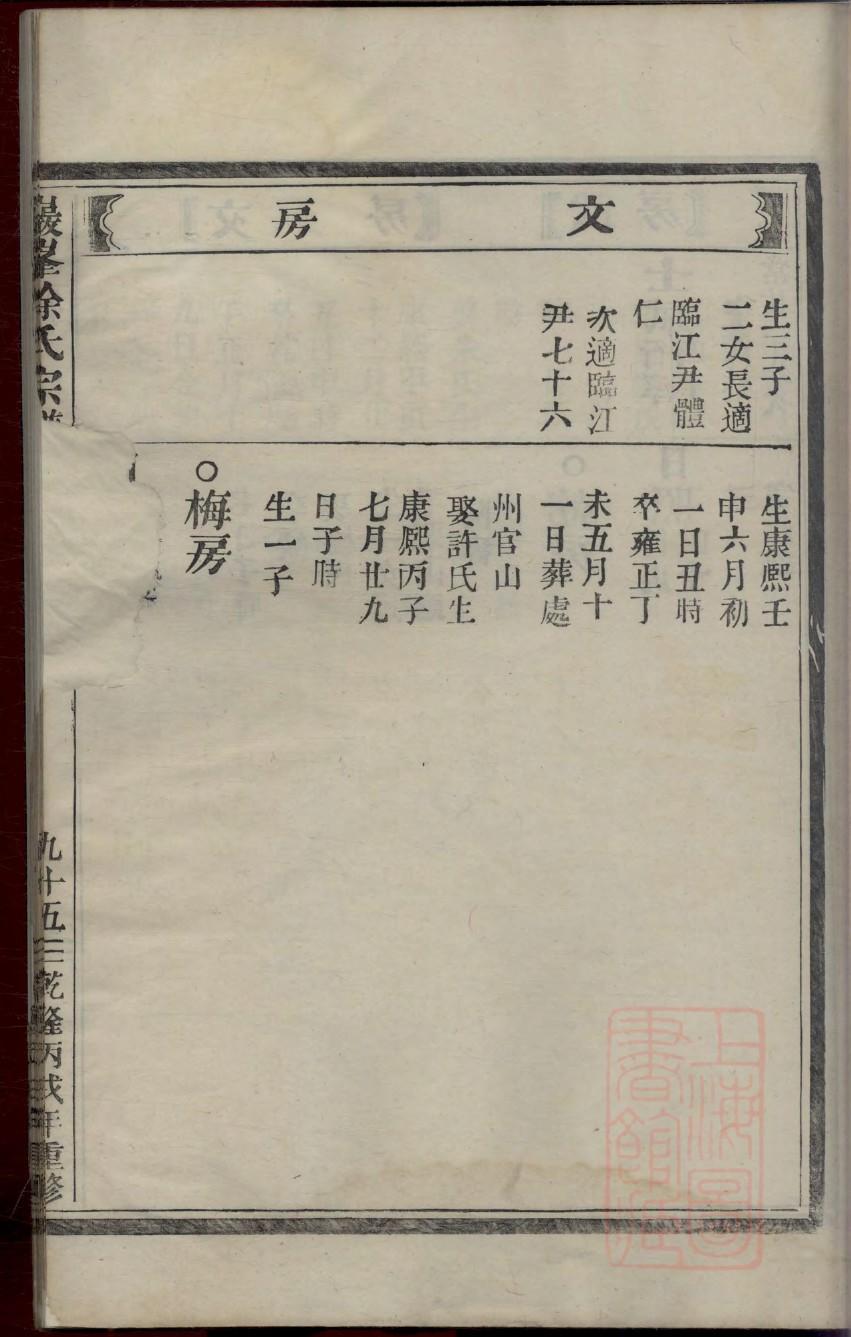 文房
生三子
二女長適
臨江尹體
仁
次適臨江
尹七十六
生康熈壬
申六月初
一日丑時
卒雍正丁
未五月十
一日葬處
州官山
娶許氏生
康熈丙子
七月廿九
日子時
生一子
○梅房
巖峯徐氏宗
九十五
乾隆丙戌年重修
上海圖書館藏